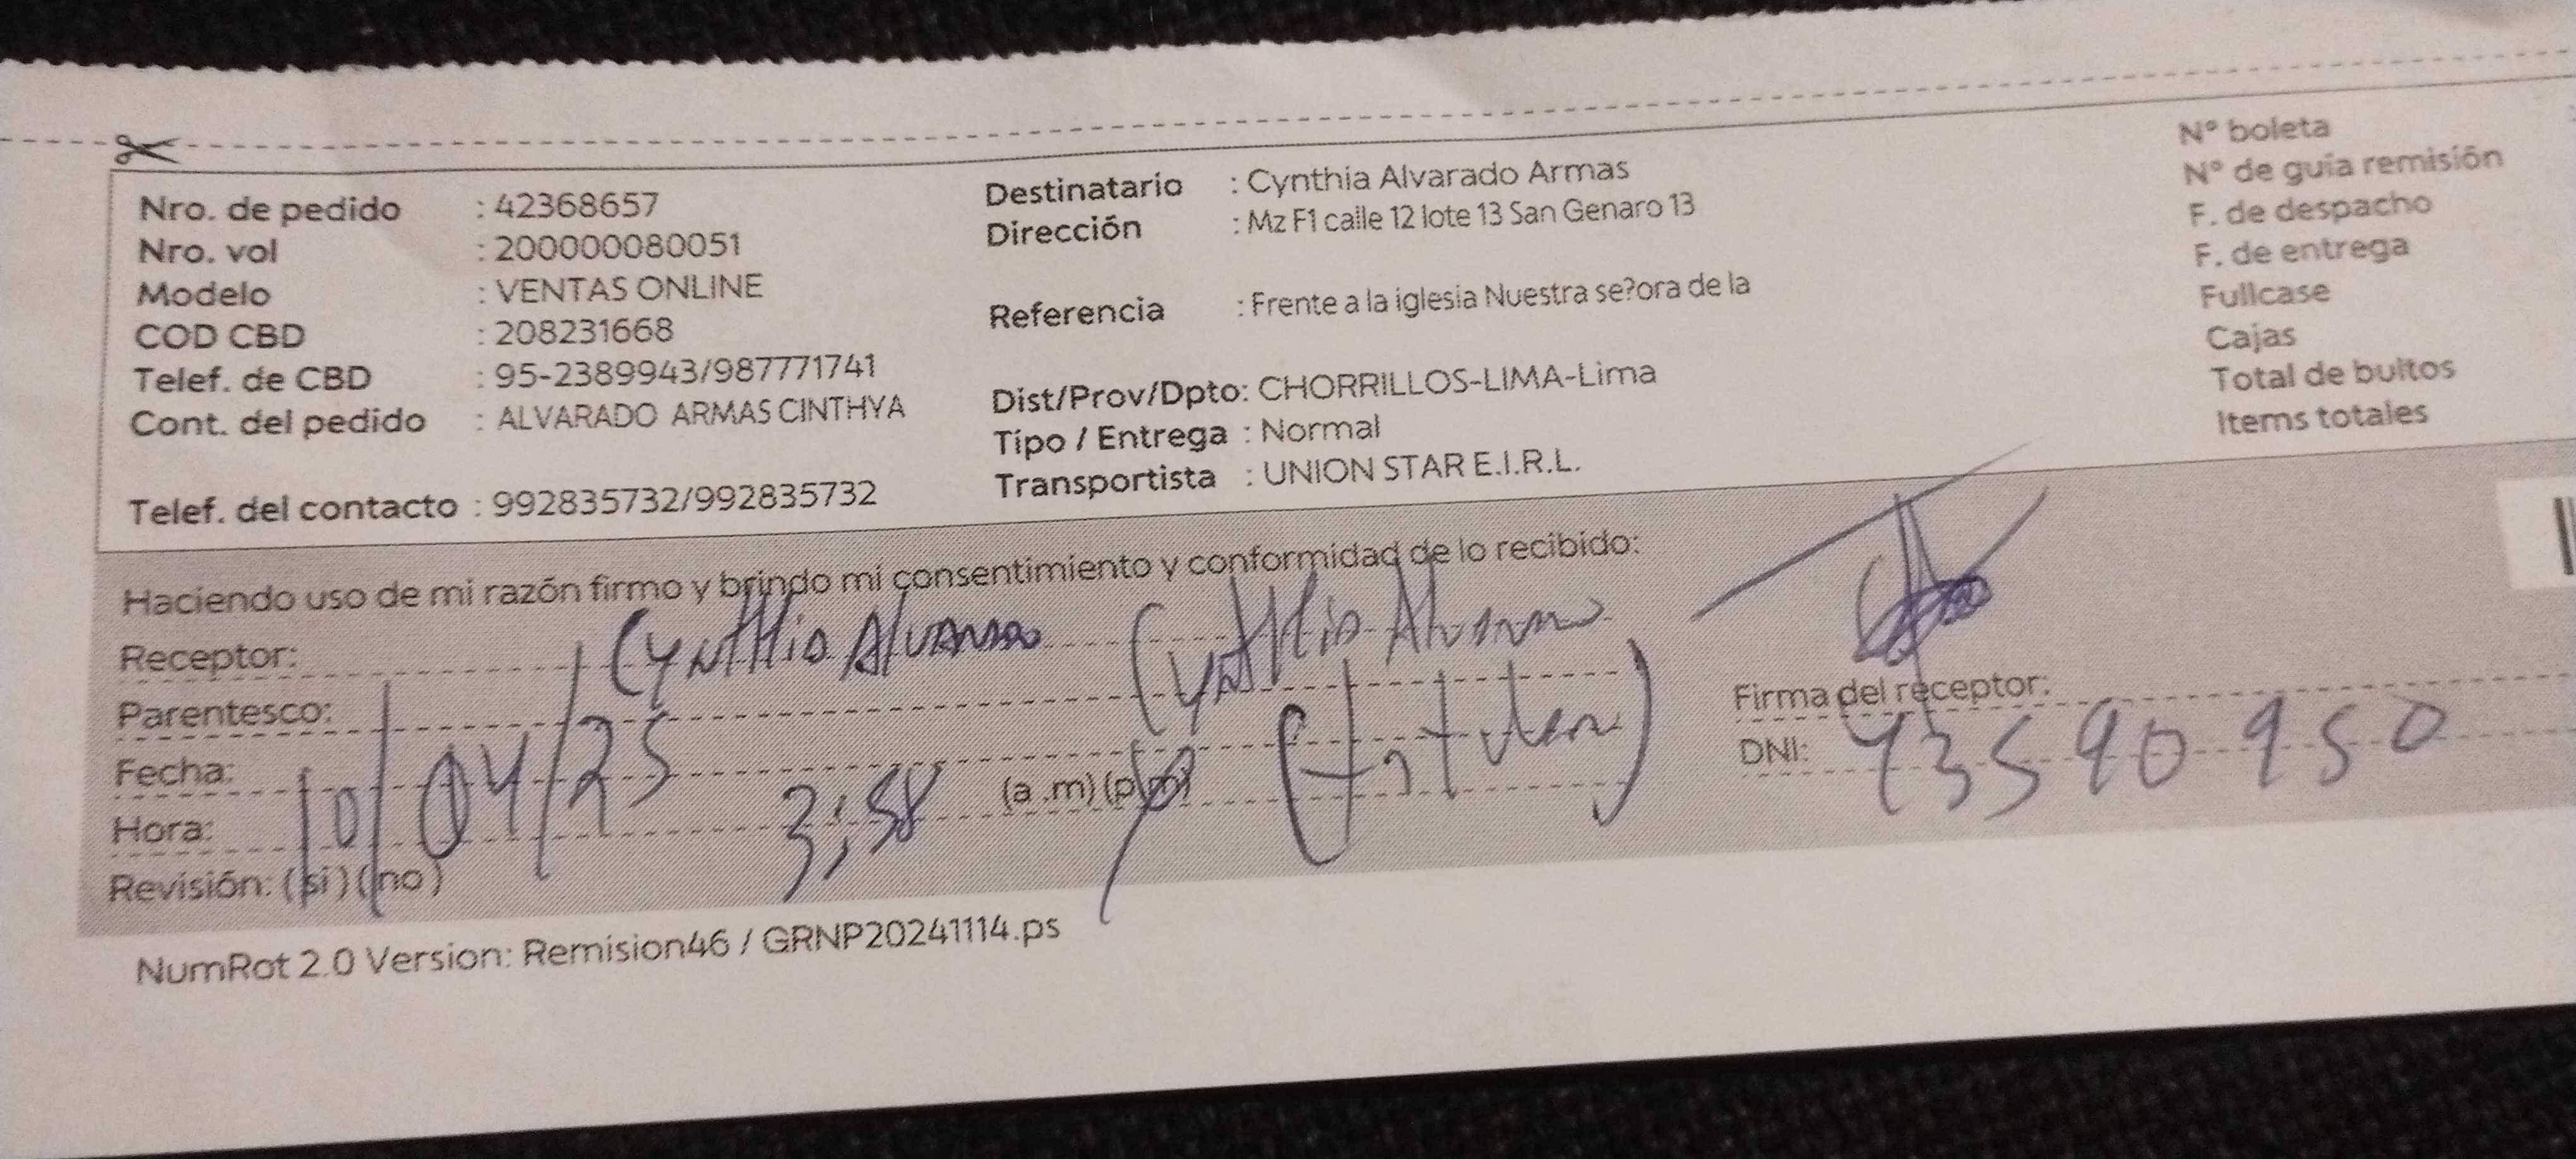 Nro. de pedido : 42368657
Nro. vol : 200000080051
Modelo : VENTAS ONLINE
COD CBD : 208231668
Telef. de CBD : 95-2389943/987771741
Cont. del pedido : ALVARADO ARMAS CINTHYA
Telef. del contacto : 992835732/992835732
Destinatario : Cynthia Alvarado Armas
Dirección : Mz F1 calle 12 lote 13 San Genaro 13
Referencia : Frente a la iglesia Nuestra se?ora de la
Dist/Prov/Dpto: CHORRILLOS-LIMA-Lima
Tipo / Entrega : Normal
Transportista : UNION STAR E.I.R.L.
N° boleta
N° de guía remisión
F. de despacho
F. de entrega
Fullcase
Cajas
Total de bultos
Items totales
Haciendo uso de mi razón firmo y brindo mi consentimiento y conformidad de lo recibido:
Receptor: Cynthia Alvarado Cynthia Alvarado
Parentesco: (titular)
Fecha: 10/04/25
Hora: 3:58 (a .m) (p.m)
Revisión: (si) (no)
Firma del receptor:
DNI: 43590950
NumRot 2.0 Version: Remision46 / GRNP20241114.ps